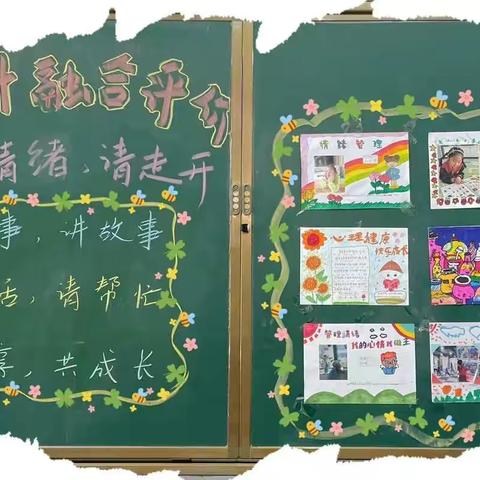 融合评价
情绪,请走开
事,讲故事
请帮忙
享,共成长
情绪管理
心理健康
快乐成长
管理情绪
我的心情我做主